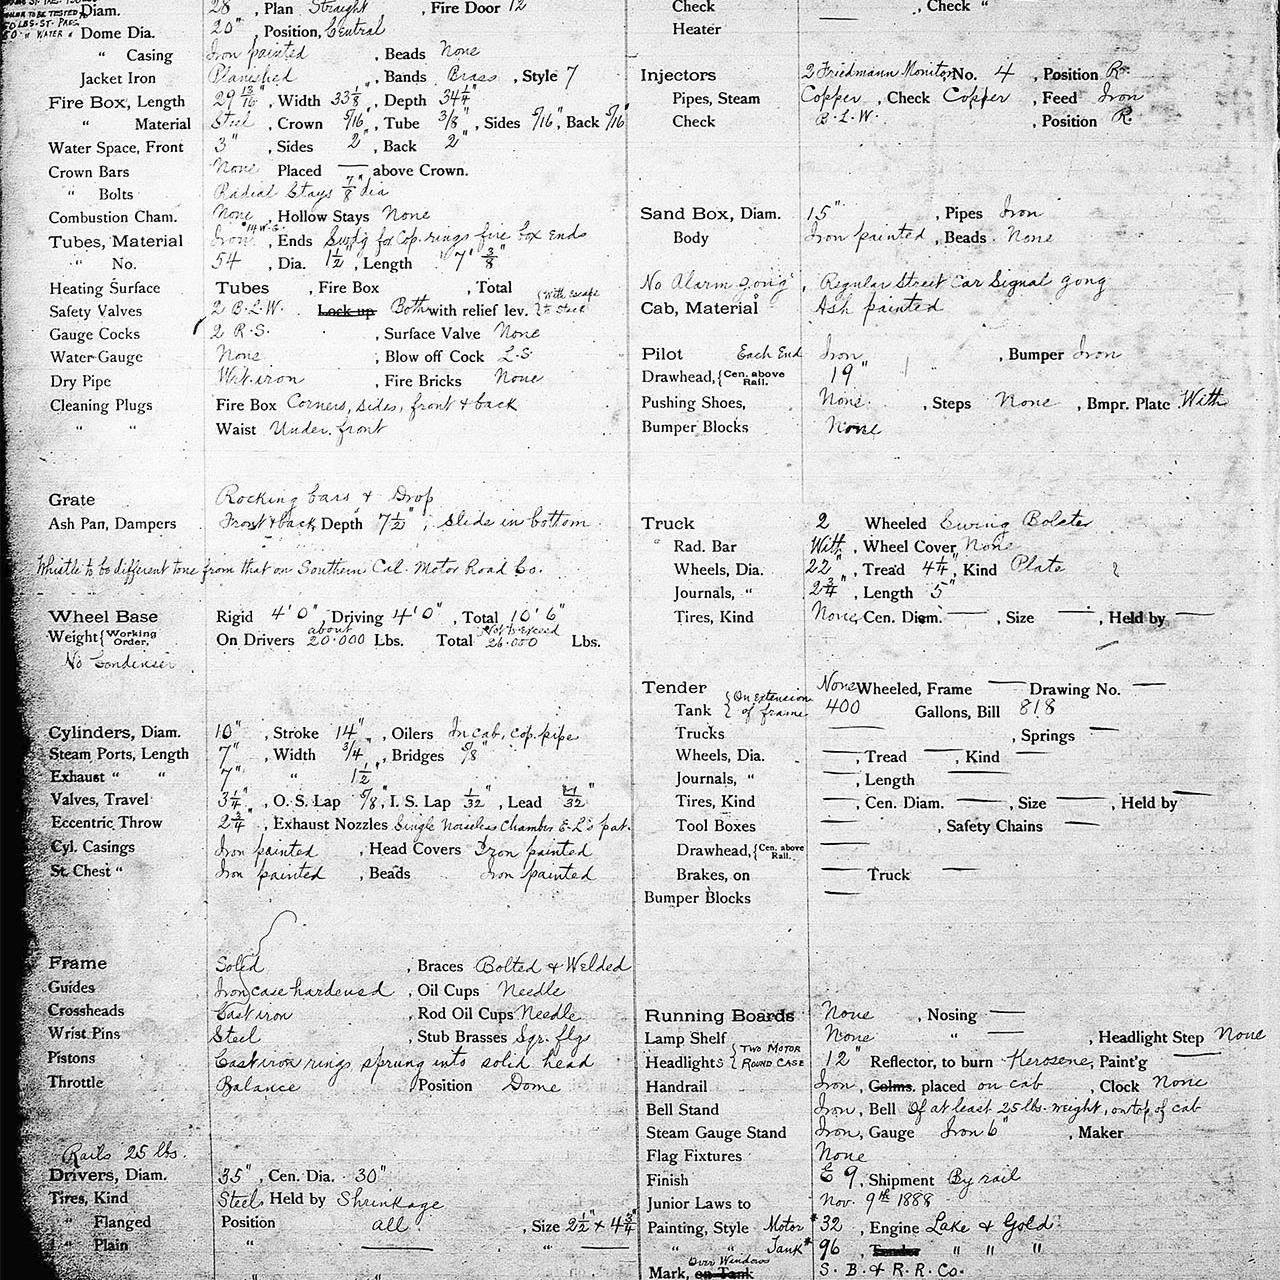 Diam. 28", Plan Straight, Fire Door 12
50 LBS. ST. PRES.
Dome Dia. 20", Position, Central
" Casing Iron painted, Beads None
Jacket Iron Planished, Bands Brass, Style 7
Fire Box, Length 29 13/16", Width 33 1/8", Depth 34 1/4"
" Material Steel, Crown 5/16", Tube 3/8", Sides 5/16", Back 5/16"
Water Space, Front 3", Sides 2", Back 2"
Crown Bars None Placed — above Crown.
" Bolts Radial Stays 7/8" dia
Combustion Cham. None, Hollow Stays None
Tubes, Material Iron #14 W.G., Ends Swdg for Cop. rings fire box ends
" No. 54, Dia. 1 1/2", Length 7' 3/8"
Heating Surface Tubes , Fire Box , Total
Safety Valves 2 B.L.W. Lock up Both with relief lev. {With Escape to Stack
Gauge Cocks 2 R.S. , Surface Valve None
Water Gauge None ; Blow off Cock L.S.
Dry Pipe Wrt iron , Fire Bricks None
Cleaning Plugs Fire Box Corners, sides, front & back
" " Waist Under. front
Grate Rocking bars & Drop
Ash Pan, Dampers Front & back Depth 7 1/2", Slide in bottom
Whistle to be different tone from that on Southern Cal. Motor Road Co.
Wheel Base Rigid 4' 0", Driving 4' 0", Total 10' 6"
Weight {Working Order, On Drivers about 20.000 Lbs. Total Not to exceed 26.000 Lbs.
No Condenser
Cylinders, Diam. 10", Stroke 14", Oilers In cab, cop. pipe
Steam Ports, Length 7", Width 3/4", Bridges 5/8"
Exhaust " " 7" " 1 1/2"
Valves, Travel 3 1/4", O. S. Lap 5/8", I. S. Lap 1/32", Lead /32"
Eccentric Throw 2 3/4", Exhaust Nozzles Single Noiseless Chamber E-L's pat.
Cyl. Casings Iron painted, Head Covers Iron painted
St. Chest " Iron painted, Beads Iron painted
Frame Solid , Braces Bolted & Welded
Guides Iron case hardened, Oil Cups Needle
Crossheads Cast iron , Rod Oil Cups Needle
Wrist Pins Steel , Stub Brasses Sqr. flgs
Pistons Cast iron rings sprung into solid head
Throttle Balance Position Dome
Rails 25 lbs.
Drivers, Diam. 35", Cen. Dia. 30"
Tires, Kind Steel Held by Shrinkage
" Flanged Position all , Size 2 1/2" x 4 3/4"
" Plain — " —
Check , Check "
Heater —
Injectors 2 Friedmann Monitor No. 4 , Position R.
Pipes, Steam Copper, Check Copper, Feed Iron
Check B.L.W. , Position R.
Sand Box, Diam. 15" , Pipes Iron
Body Iron painted, Beads None
No Alarm gong, Regular Street Car Signal gong
Cab, Material Ash painted
Pilot Each End Iron , Bumper Iron
Drawhead, {Cen. above Rail. 19"
Pushing Shoes, None , Steps None, Bmpr. Plate With
Bumper Blocks None
Truck 2 Wheeled Swing Bolster
" Rad. Bar With, Wheel Cover None
Wheels, Dia. 22", Tread 4 1/4", Kind Plate
Journals, " 2 3/4", Length 5"
Tires, Kind None, Cen. Diem. — , Size —, Held by —
Tender None Wheeled, Frame — Drawing No. —
Tank {On extension of frame 400 Gallons, Bill 818
Trucks — , Springs —
Wheels, Dia. —, Tread —, Kind —
Journals, " —, Length —
Tires, Kind —, Cen. Diam. —, Size —, Held by —
Tool Boxes — , Safety Chains —
Drawhead, {Cen. above Rail. —
Brakes, on — Truck —
Bumper Blocks —
Running Boards None , Nosing —
Lamp Shelf None " — , Headlight Step None
Headlights {TWO MOTOR ROUND CASE 12" Reflector, to burn Kerosene, Paint'g —
Handrail Iron, Colms. placed on cab , Clock None
Bell Stand Iron, Bell Of at least 25 lbs. weight, on top of cab
Steam Gauge Stand Iron, Gauge Iron 6" , Maker
Flag Fixtures None
Finish E 9, Shipment By rail
Junior Laws to Nov. 9th 1888
Painting, Style Motor #32, Engine Lake & Gold
" " Tank #96, Tender " " "
Mark, Over Windows on Tank S. B. & R. R. Co.